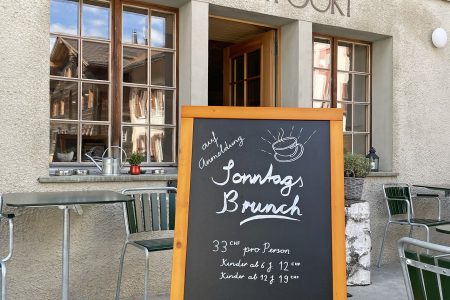 auf
Anmeldung
Sonntags
Brunch
33 CHF pro Person
Kinder ab 6 J 12 CHF
Kinder ab 12 J 19 CHF